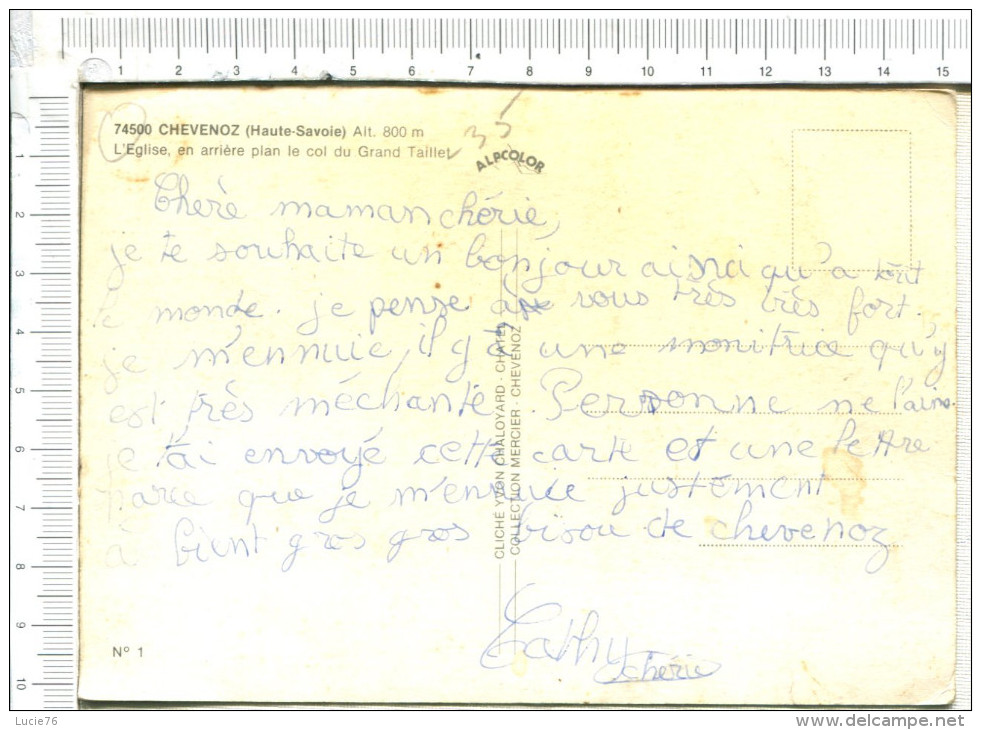 1 2 3 4 5 6 7 8 9 10 11 12 13 14 15
1
2
3
4
5
6
7
8
9
10
74500 CHEVENOZ (Haute-Savoie) Alt. 800 m
L'Eglise, en arrière plan le col du Grand Taillet
35
ALPCOLOR
Chère maman chérie,
je te souhaite un bonjour ainsi qu'a tout
le monde. je pense a vous très très fort.
je m'ennuie, il y a une monitrice qu'y
est très méchante. Personne ne l'aime.
je t'ai envoyé cette carte et une lettre
parce que je m'ennuie justement
a bient gros gros bisou de chevenoz
Cathy
chérie
CLICHÉ YVON CHALOYARD - CHATEL
COLLECTION MERCIER - CHEVENOZ
N° 1
Lucie76
delcampe.net